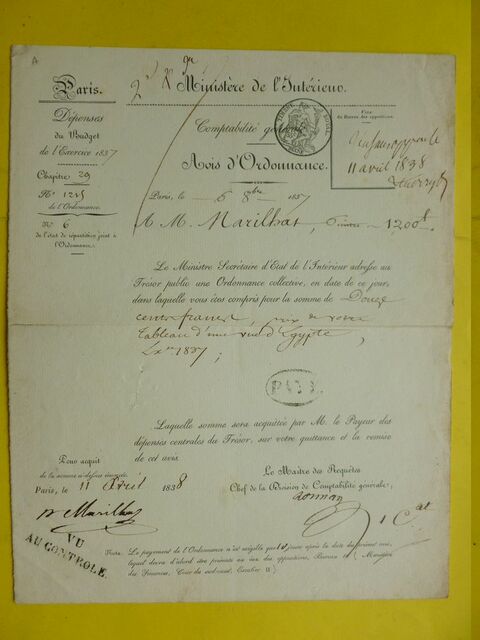 Paris.
Dépenses
du Budget
de l'Exercice 1837
Chapitre 29
N.o
de l'Ordonnance.
N.o 6
de l'état de répartition joint à
l'Ordonnance.
Ministère de l'Intérieur.
Comptabilité générale
Avis d'Ordonnance.
Vu
au Bureau des oppositions,
11 avril 1838
Paris, le 6 8bre 1837
A M. Marilhat, Peintre 1200f
Le Ministre Secrétaire d'Etat de l'Intérieur adresse au
Trésor public une Ordonnance collective, en date de ce jour,
dans laquelle vous êtes compris pour la somme de Douze
cents francs, prix de votre
tableau d'une vue d'Egypte,
Ex.ce 1837;
PAYÉ
Laquelle somme sera acquittée par M. le Payeur des
dépenses centrales du Trésor, sur votre quittance et la remise
de cet avis.
Le Maître des Requêtes
Chef de la Division de Comptabilité générale,
Pour acquit
de la somme ci-dessus énoncée.
Paris, le 11 Avril 1838
Marilhat
VU
AU CONTROLE.
Nota. Le payement de l'Ordonnance n'est exigible que jours après la date du présent avis,
lequel devra d'abord être présenté au vu des oppositions, Bureau